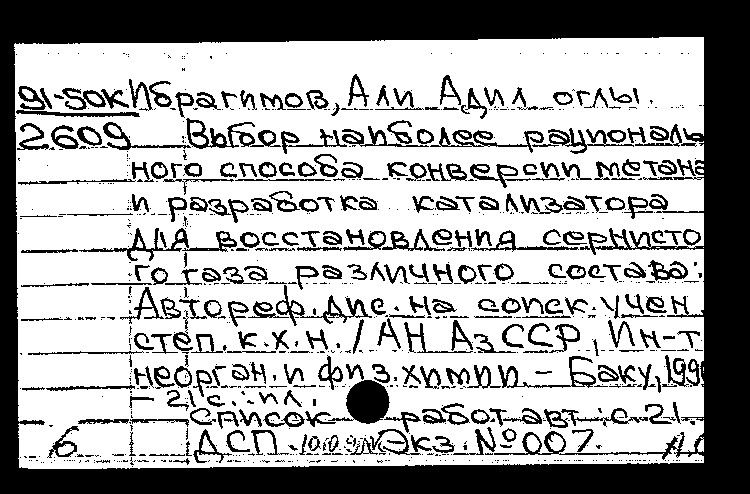 91-50к Ибрагимов, Али Адил оглы.
2609 Выбор наиболее рациональ
ного способа конверсии метана
и разработка катализатора
для восстановления сернисто
го газа различного состава:
Автореф. дис. на соиск. учен.
степ. к.х.н. / АН АзССР, Ин-т
неорган. и физ. химии. – Баку, 199
– 21 с.: ил.
Список работ авт.: с. 21.
б ДСП. Экз. №007.